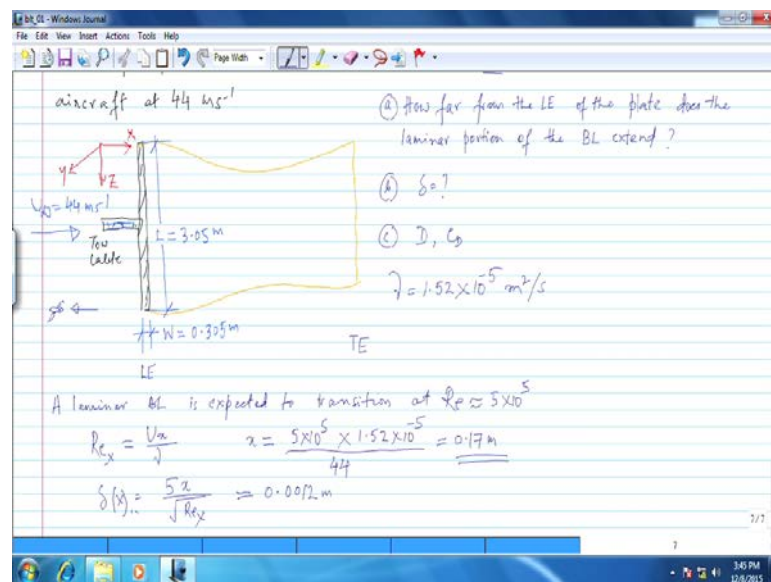 blt_01 - Windows Journal
File Edit View Insert Actions Tools Help
Page Width
aircraft at 44 ms⁻¹
X
Y
Z
U∞ = 44 ms⁻¹
Tow
Cable
L = 3.05 m
W = 0.305 m
LE
TE
ⓐ How far from the LE of the plate does the
laminar portion of the BL extend?
ⓑ δ = ?
ⓒ D, C_D
ν = 1.52 × 10⁻⁵ m²/s
A laminar BL is expected to transition at Re ≈ 5 × 10⁵
Re_x = Ux/ν x = (5 × 10⁵ × 1.52 × 10⁻⁵)/44 = 0.17 m
δ(x) = 5x/√Re_x = 0.0012 m
7/7
7
3:45 PM
12/8/2015